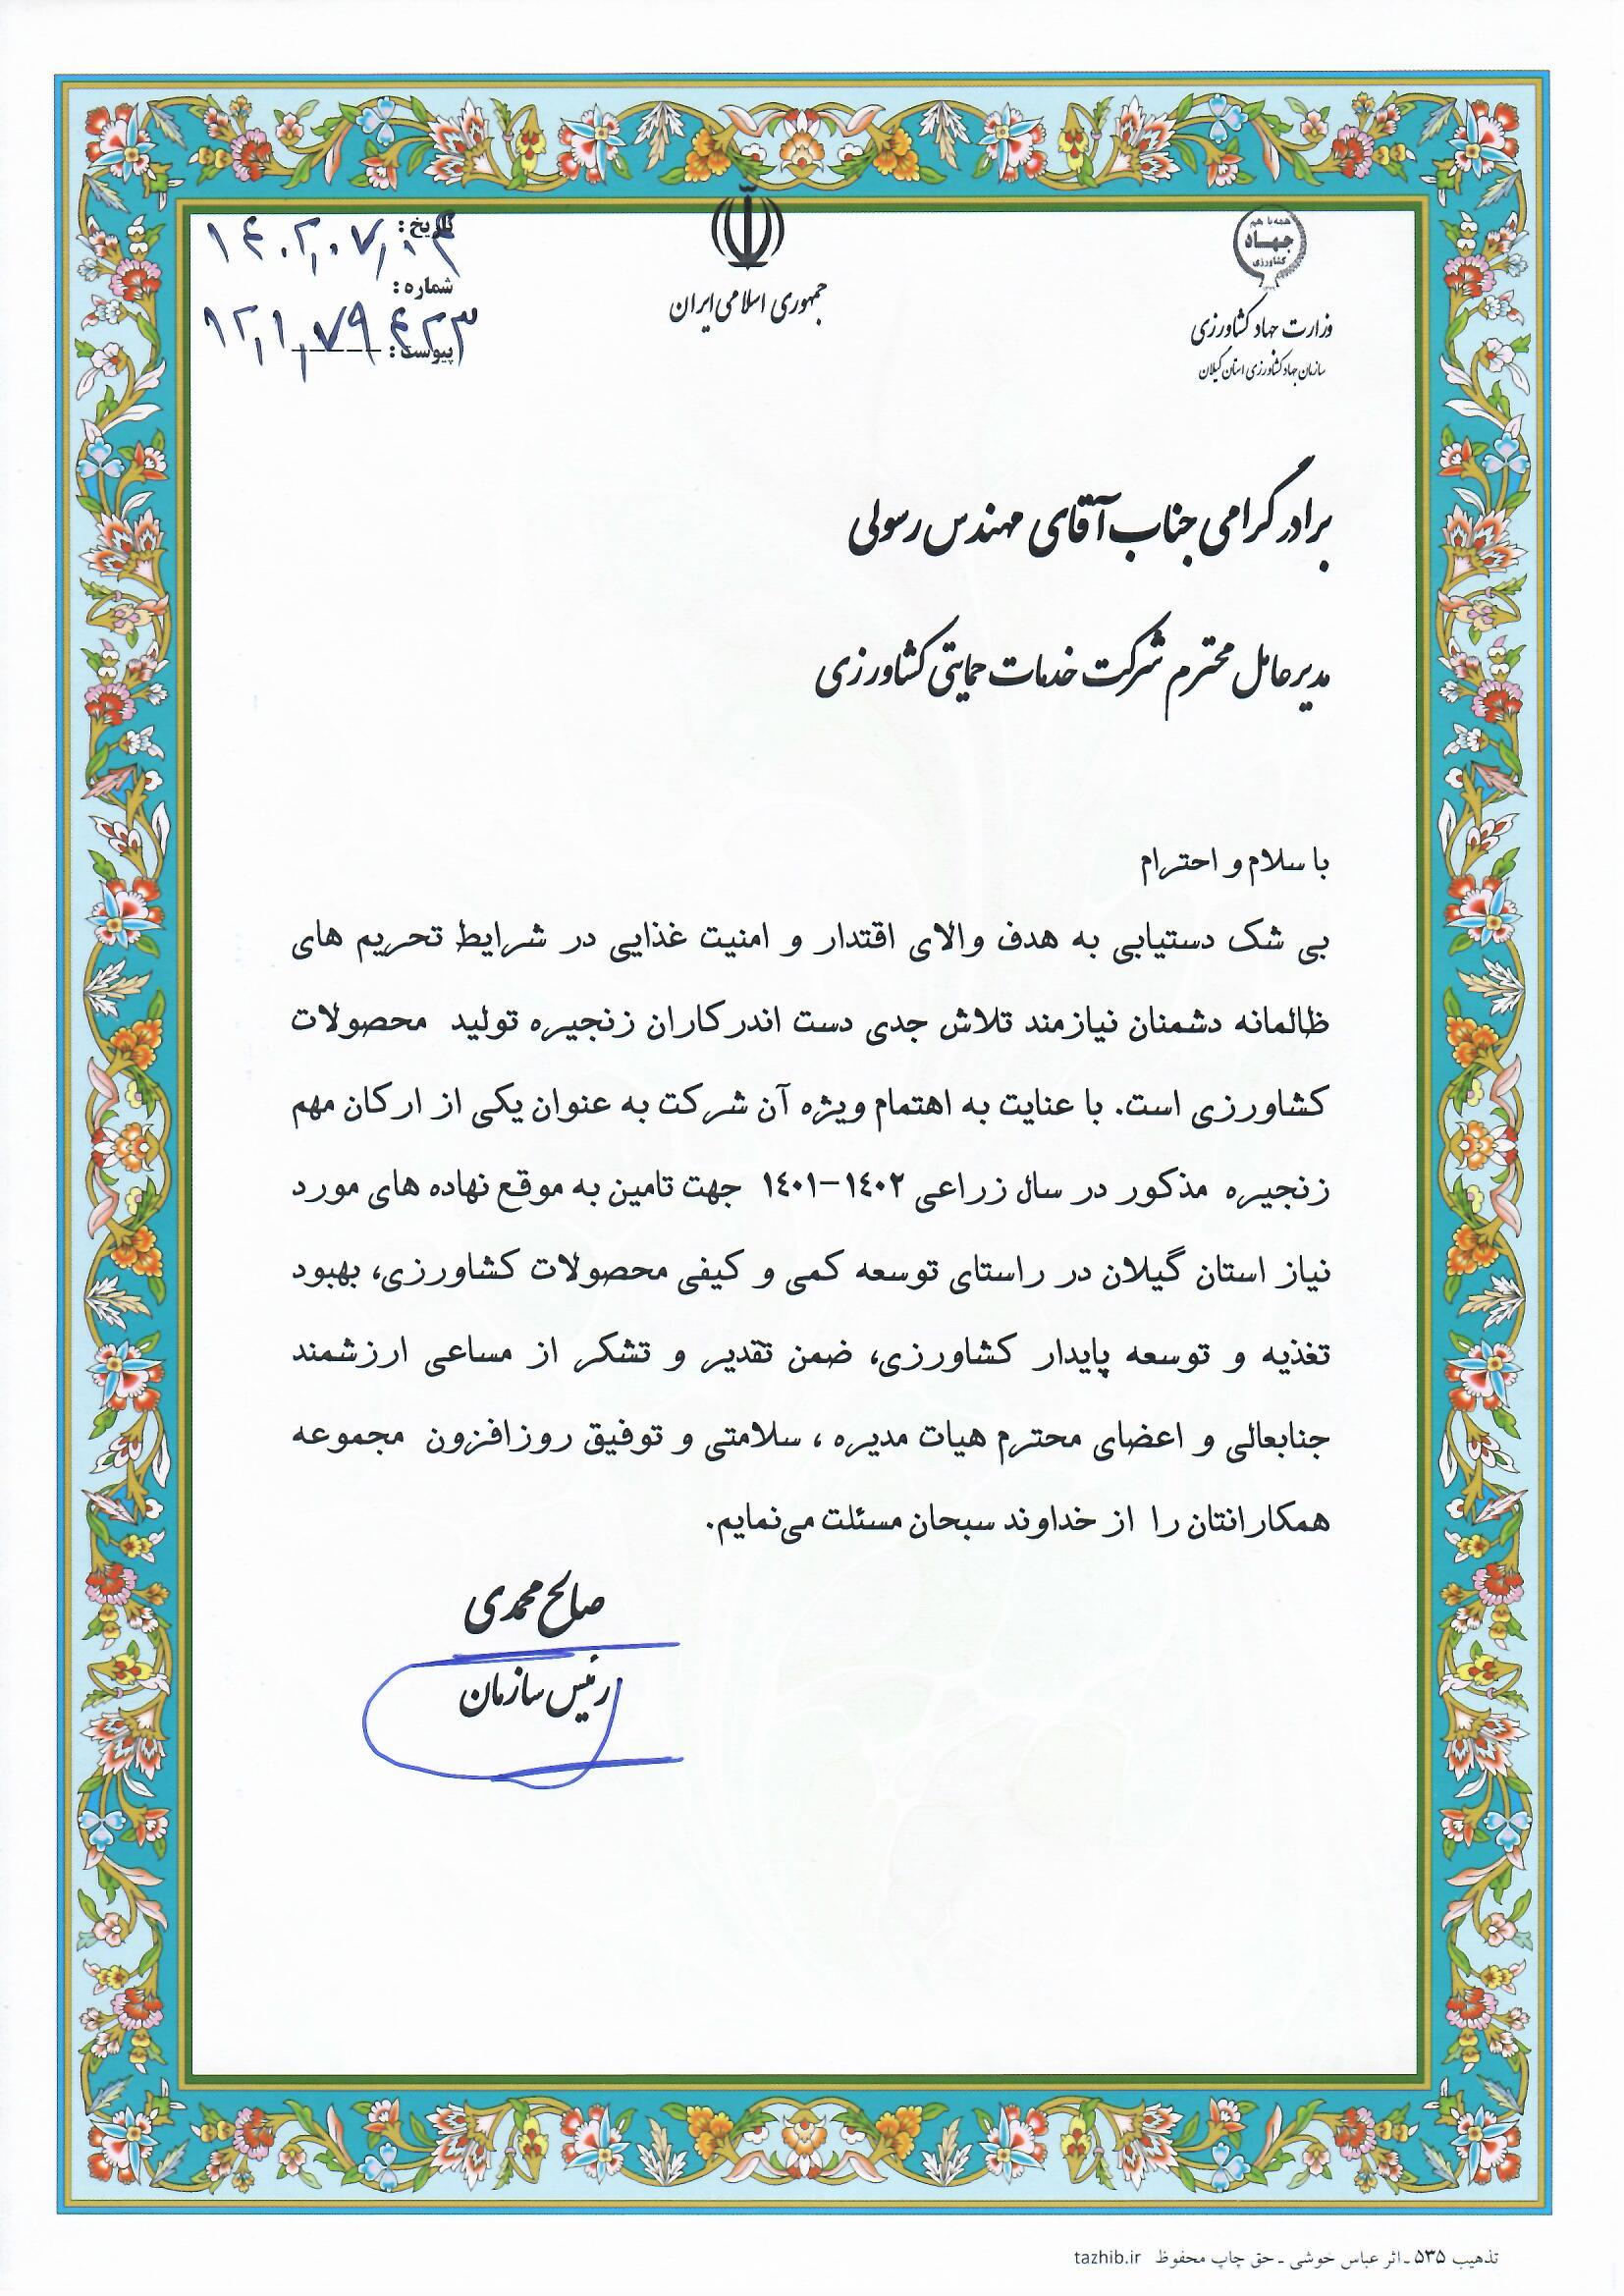 همه با هم
جهاد
کشاورزی
وزارت جهاد کشاورزی
سازمان جهاد کشاورزی استان گیلان
جمهوری اسلامی ایران
تاریخ: ۱۴۰۲,۰۷,۰۴
شماره:
۱۲,۱,۷۹۴۲۳
پیوست:
برادر گرامی جناب آقای مهندس رسولی
مدیرعامل محترم شرکت خدمات حمایتی کشاورزی
با سلام و احترام
بی شک دستیابی به هدف والای اقتدار و امنیت غذایی در شرایط تحریم های
ظالمانه دشمنان نیازمند تلاش جدی دست اندرکاران زنجیره تولید محصولات
کشاورزی است. با عنایت به اهتمام ویژه آن شرکت به عنوان یکی از ارکان مهم
زنجیره مذکور در سال زراعی ۱۴۰۲-۱۴۰۱ جهت تامین به موقع نهاده های مورد
نیاز استان گیلان در راستای توسعه کمی و کیفی محصولات کشاورزی، بهبود
تغذیه و توسعه پایدار کشاورزی، ضمن تقدیر و تشکر از مساعی ارزشمند
جنابعالی و اعضای محترم هیات مدیره ، سلامتی و توفیق روزافزون مجموعه
همکارانتان را از خداوند سبحان مسئلت می‌نمایم.
صالح محمدی
رئیس سازمان
تذهیب ۵۳۵ - اثر عباس خوشی - حق چاپ محفوظ tazhib.ir